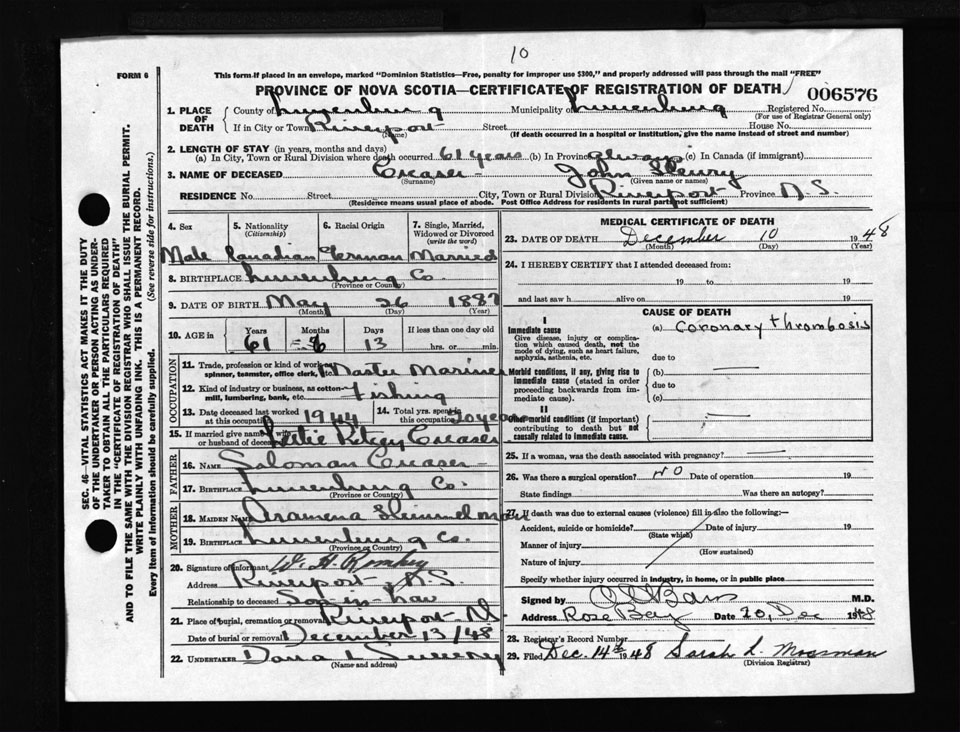 10
FORM 6
This form if placed in an envelope, marked "Dominion Statistics—Free, penalty for improper use $300," and properly addressed will pass through the mail "FREE"
PROVINCE OF NOVA SCOTIA—CERTIFICATE OF REGISTRATION OF DEATH
006576
1. PLACE OF DEATH
County of Lunenburg Municipality of Lunenburg Registered No.
(For use of Registrar General only)
If in City or Town Riverport Street House No.
(Name) (If death occurred in a hospital or institution, give the name instead of street and number)
2. LENGTH OF STAY (in years, months and days)
(a) In City, Town or Rural Division where death occurred 61 years (b) In Province always (c) In Canada (if immigrant)
3. NAME OF DECEASED Creaser John Henry
(Surname) (Given name or names)
RESIDENCE No. Street City, Town or Rural Division Riverport Province N.S.
(Residence means usual place of abode. Post Office Address for residents in rural parts not sufficient)
4. Sex
Male
5. Nationality
(Citizenship)
Canadian
6. Racial Origin
German
7. Single, Married, Widowed or Divorced
(write the word)
Married
8. BIRTHPLACE Lunenburg Co.
(Province or County)
9. DATE OF BIRTH May 26 1887
(Month) (Day) (Year)
10. AGE in Years Months Days If less than one day old
61 6 13 hrs. or min.
OCCUPATION
11. Trade, profession or kind of work as spinner, teamster, office clerk, etc. Master Mariner
12. Kind of industry or business, as cotton-mill, lumbering, bank, etc. Fishing
13. Date deceased last worked at this occupation 1944
14. Total yrs. spent in this occupation 30 years
15. If married give name of wife or husband of deceased Ritcey Creaser
FATHER
16. NAME Soloman Creaser
17. BIRTHPLACE Lunenburg Co.
(Province or County)
MOTHER
18. MAIDEN NAME Himmelman
19. BIRTHPLACE Lunenburg Co.
(Province or Country)
20. Signature of informant W. H. Romkey
Address Riverport, N.S.
Relationship to deceased Son-in-law
21. Place of burial, cremation or removal Riverport N.S.
Date of burial or removal December 13/48
22. UNDERTAKER Donald Sweeny
(Name and address)
MEDICAL CERTIFICATE OF DEATH
23. DATE OF DEATH December 10 1948
(Month) (Day) (Year)
24. I HEREBY CERTIFY that I attended deceased from:
19 to 19
and last saw h alive on 19
CAUSE OF DEATH
I
Immediate cause (a) Coronary thrombosis
Give disease, injury or complication which caused death, not the mode of dying, such as heart failure, asphyxia, asthenia, etc.
due to
Morbid conditions, if any, giving rise to immediate cause (stated in order proceeding backwards from immediate cause).
(b)
due to
(c)
II
Other morbid conditions (if important) contributing to death but not causally related to immediate cause.
25. If a woman, was the death associated with pregnancy?
26. Was there a surgical operation? NO Date of operation 19
State findings Was there an autopsy?
27. If death was due to external causes (violence) fill in also the following:—
Accident, suicide or homicide? Date of injury 19
(State which)
Manner of injury
(How sustained)
Nature of injury
Specify whether injury occurred in industry, in home, or in public place
Signed by M.D.
Address Rose Bay Date 10, Dec 1948
28. Registrar's Record Number
29. Filed Dec. 14th 1948 Sarah L. Mossman
(Division Registrar)
SEC. 46—VITAL STATISTICS ACT MAKES IT THE DUTY
OF THE UNDERTAKER OR PERSON ACTING AS UNDER-
TAKER TO OBTAIN ALL THE PARTICULARS REQUIRED
IN THE "CERTIFICATE OF REGISTRATION OF DEATH"
AND TO FILE THE SAME WITH THE DIVISION REGISTRAR WHO SHALL ISSUE THE BURIAL PERMIT.
WRITE PLAINLY WITH UNFADING INK. THIS IS A PERMANENT RECORD.
Every item of information should be carefully supplied. (See reverse side for instructions.)